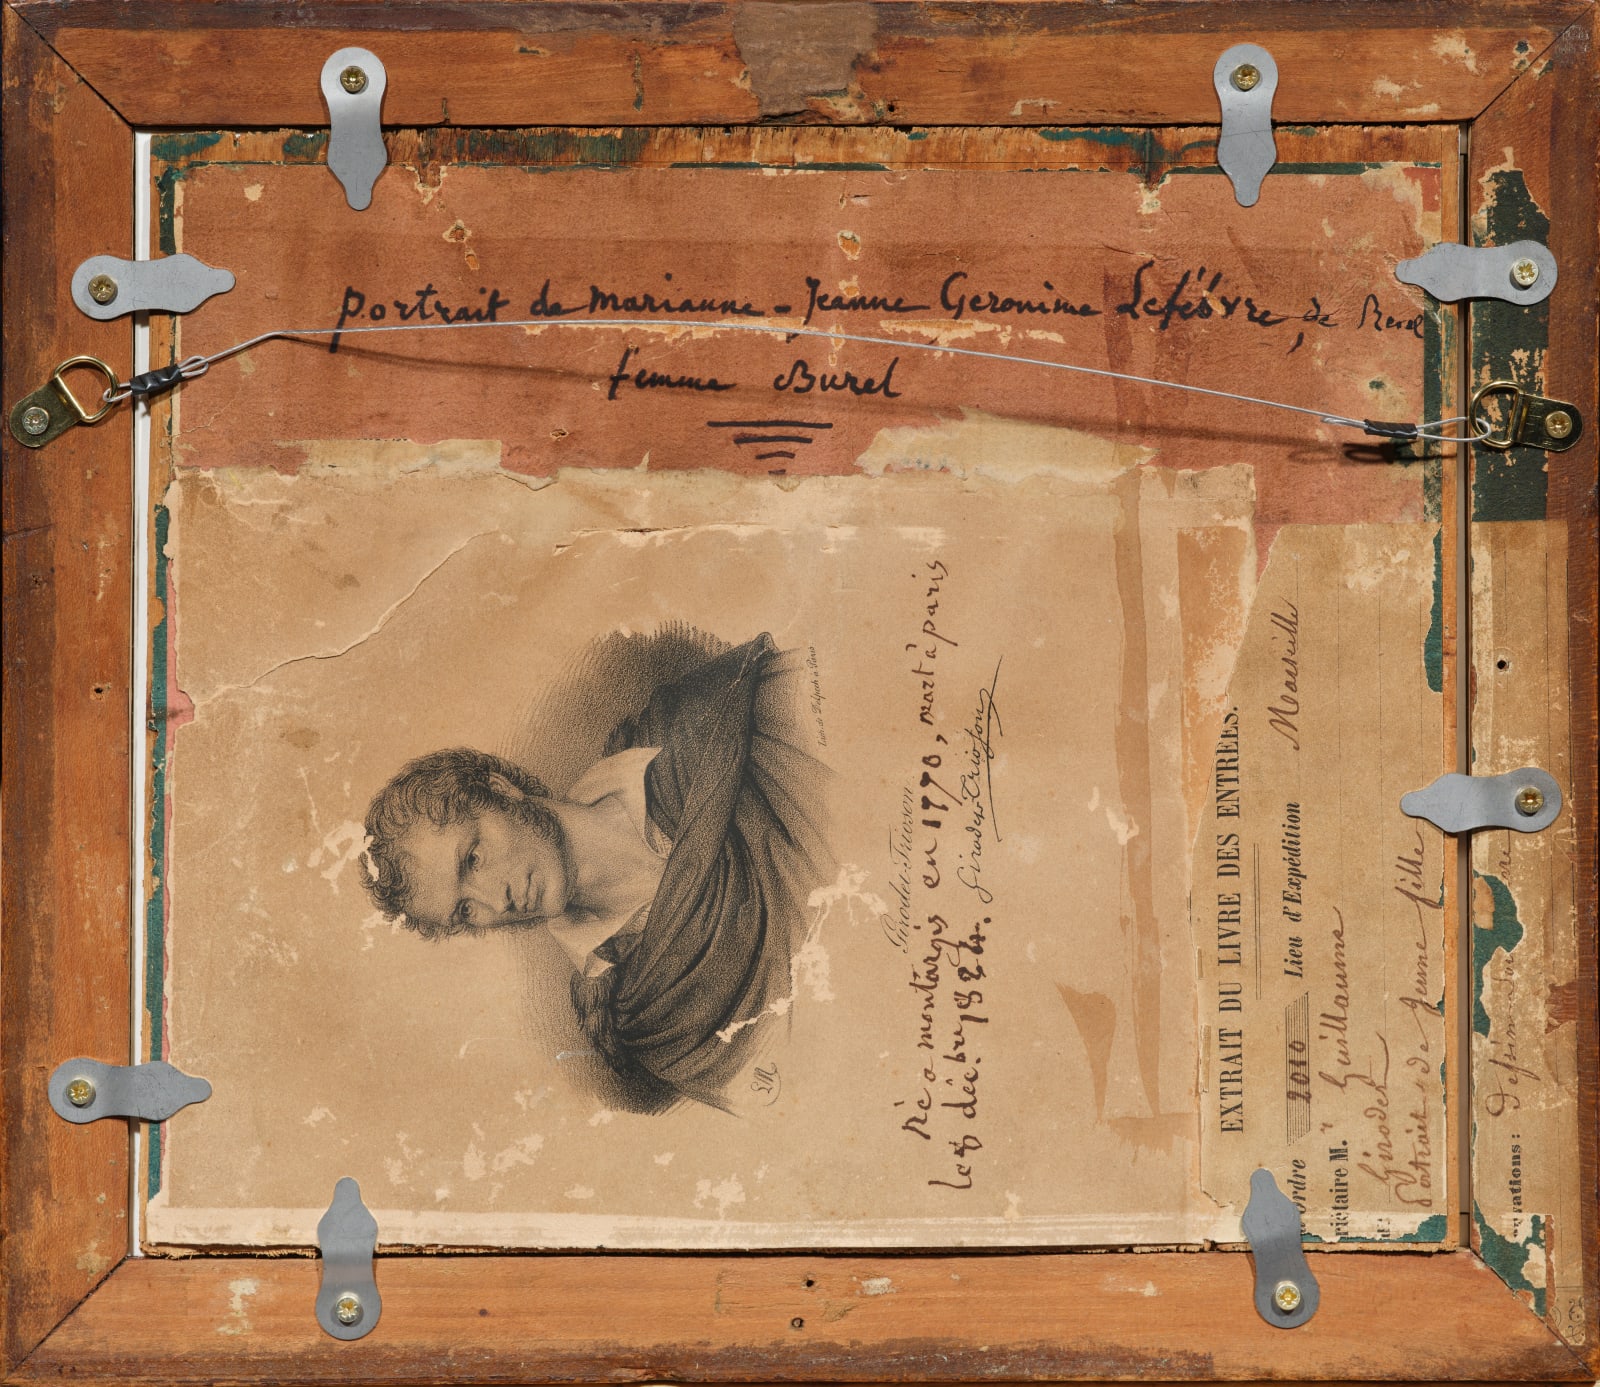 Portrait de marianne - Jeanne Geronime Lefébvre, de Revel
femme Burel
Lith. de Delpech à Paris
LM
Girodet-Trioson.
Né a montargis en 1770, mort à paris
le 8 décbre 1824. Girodet Trioson
EXTRAIT DU LIVRE DES ENTRÉES.
ordre 2010 Lieu d'Expédition Marseille
riétaire M. r Guillaume
Girodet
Portrait de jeune fille
rvations :